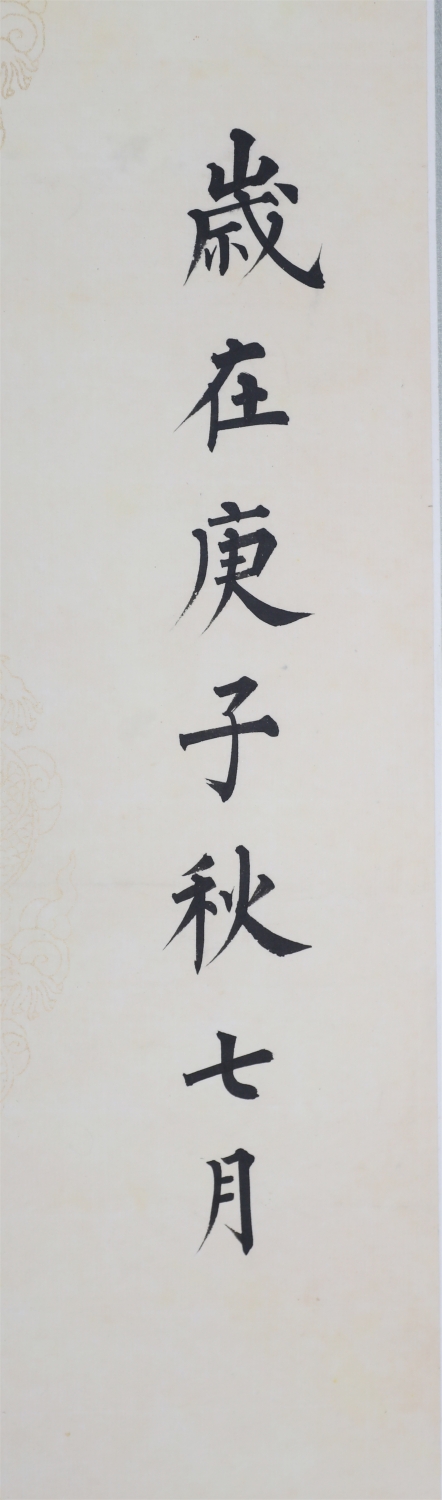 歳在庚子秋七月